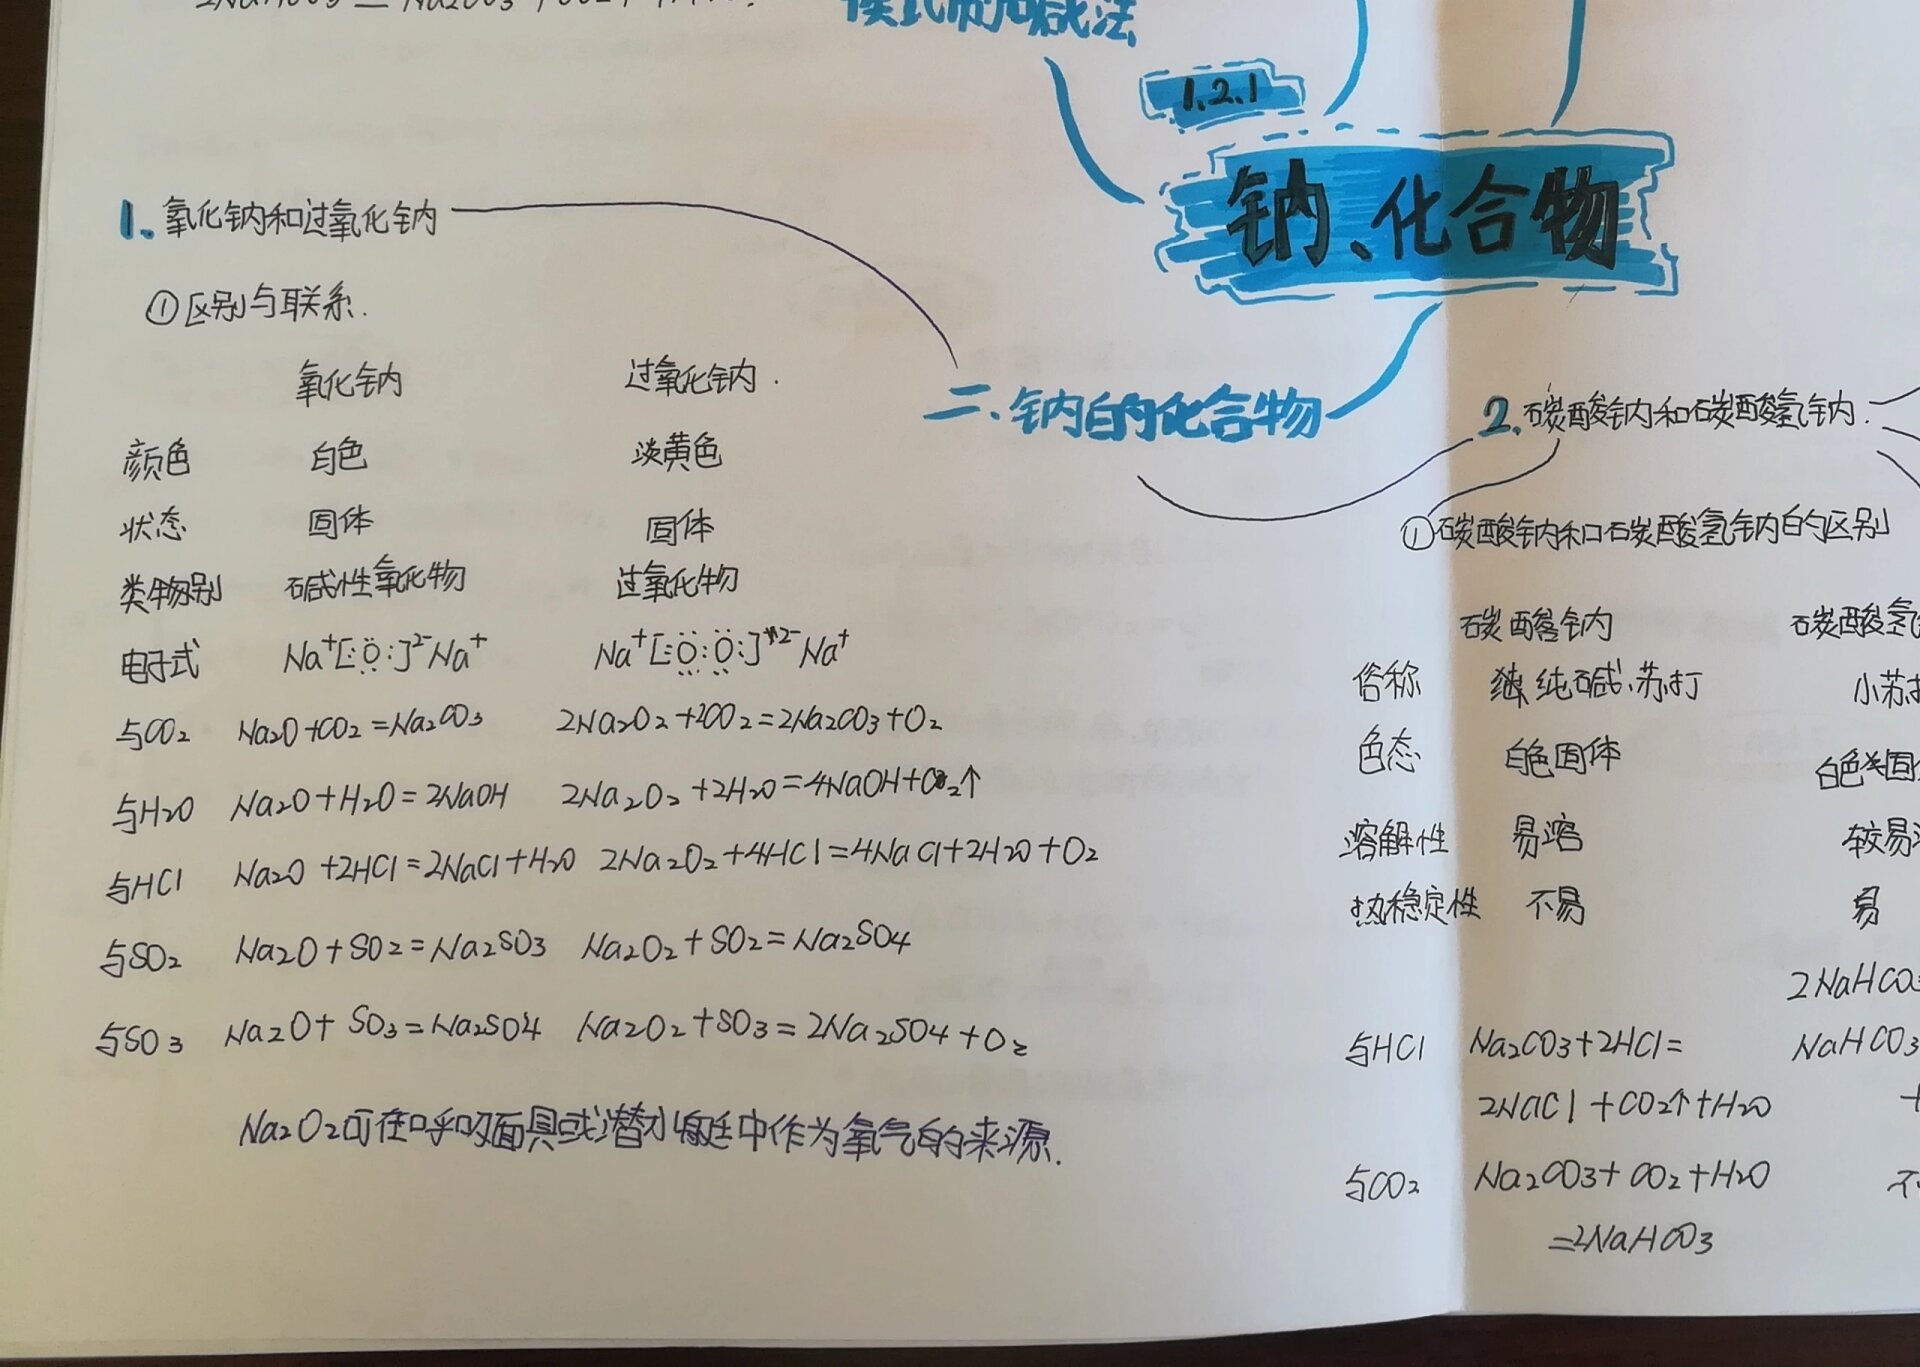 侯式制碱法
1.2.1
钠、化合物
二.钠的化合物
1.氧化钠和过氧化钠
①区别与联系.
氧化钠 过氧化钠.
颜色 白色 淡黄色
状态 固体 固体
类物别 碱性氧化物 过氧化物
电子式 Na⁺[:Ö:]²⁻Na⁺ Na⁺[:Ö:Ö:]²⁻Na⁺
与CO₂ Na₂O+CO₂=Na₂CO₃ 2Na₂O₂+2CO₂=2Na₂CO₃+O₂
与H₂O Na₂O+H₂O=2NaOH 2Na₂O₂+2H₂O=4NaOH+O₂↑
与HCl Na₂O+2HCl=2NaCl+H₂O 2Na₂O₂+4HCl=4NaCl+2H₂O+O₂
与SO₂ Na₂O+SO₂=Na₂SO₃ Na₂O₂+SO₂=Na₂SO₄
与SO₃ Na₂O+SO₃=Na₂SO₄ Na₂O₂+SO₃=2Na₂SO₄+O₂
Na₂O₂可在呼吸面具或潜水艇中作为氧气的来源.
2.碳酸钠和碳酸氢钠.
①碳酸钠和碳酸氢钠的区别
碳酸钠 碳酸氢
俗称 纯碱、苏打 小苏
色态 白色固体 白色固
溶解性 易溶 较易
热稳定性 不易 易
2NaHCO₃
与HCl Na₂CO₃+2HCl= NaHCO₃
2NaCl+CO₂↑+H₂O +
与CO₂ Na₂CO₃+CO₂+H₂O 不
=2NaHCO₃